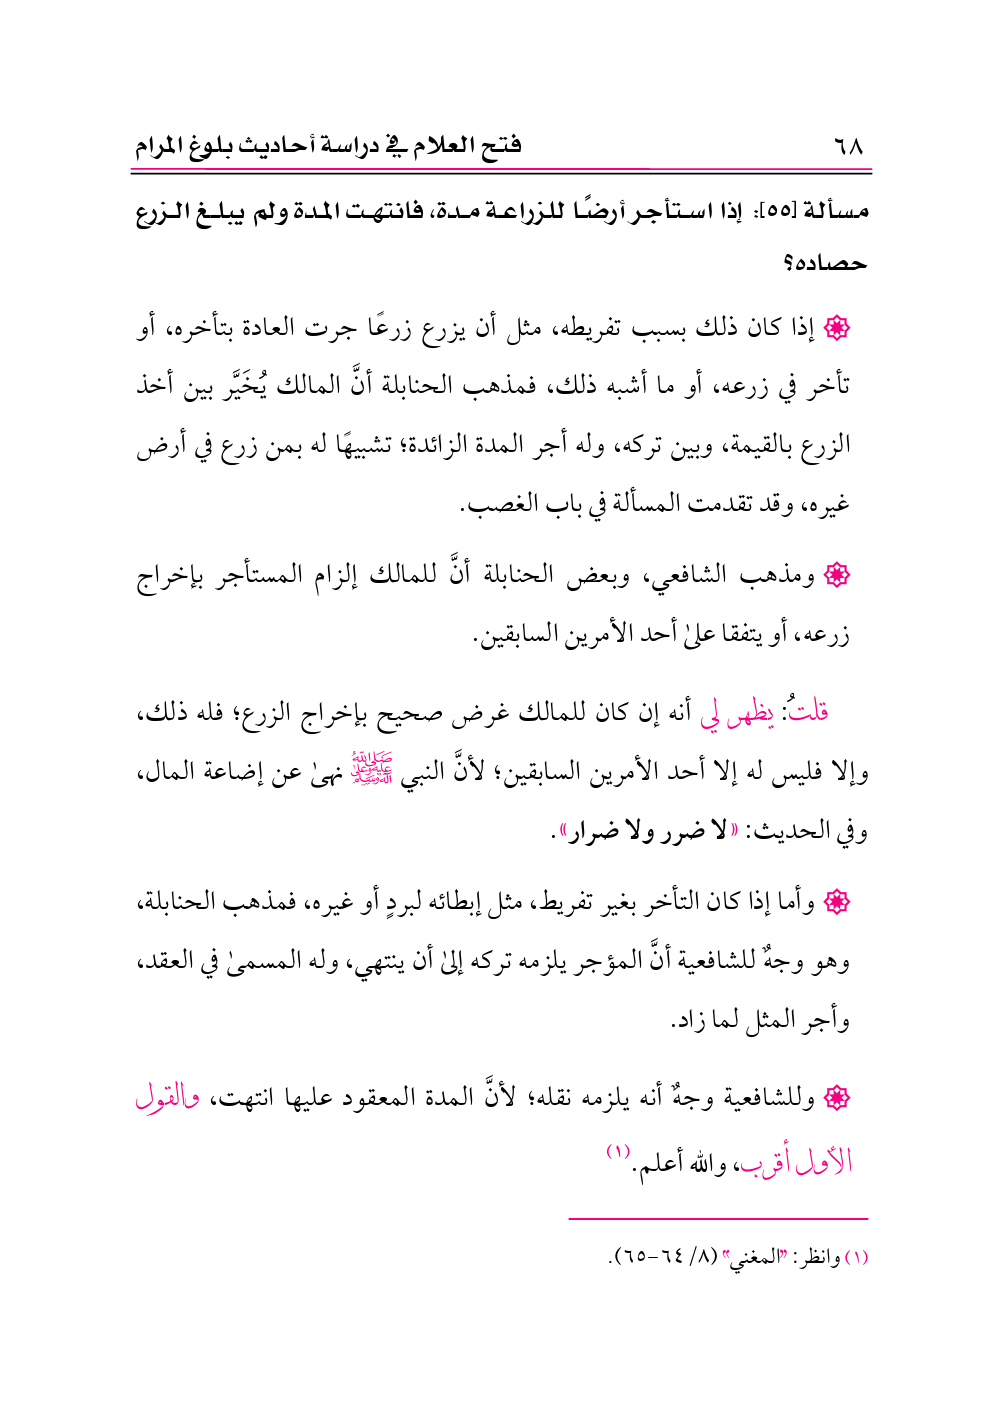 ٦٨ فتح العلام في دراسة أحاديث بلوغ المرام
مسألة [٥٥]: إذا استأجر أرضًا للزراعة مدة، فانتهت المدة ولم يبلغ الزرع
حصاده؟
إذا كان ذلك بسبب تفريطه، مثل أن يزرع زرعًا جرت العادة بتأخره، أو
تأخر في زرعه، أو ما أشبه ذلك، فمذهب الحنابلة أنَّ المالك يُخَيَّر بين أخذ
الزرع بالقيمة، وبين تركه، وله أجر المدة الزائدة؛ تشبيهًا له بمن زرع في أرض
غيره، وقد تقدمت المسألة في باب الغصب.
ومذهب الشافعي، وبعض الحنابلة أنَّ للمالك إلزام المستأجر بإخراج
زرعه، أو يتفقا علىٰ أحد الأمرين السابقين.
قلتُ: يظهر لي أنه إن كان للمالك غرض صحيح بإخراج الزرع؛ فله ذلك،
وإلا فليس له إلا أحد الأمرين السابقين؛ لأنَّ النبي ﷺ نهىٰ عن إضاعة المال،
وفي الحديث: «لا ضرر ولا ضرار».
وأما إذا كان التأخر بغير تفريط، مثل إبطائه لبردٍ أو غيره، فمذهب الحنابلة،
وهو وجهٌ للشافعية أنَّ المؤجر يلزمه تركه إلىٰ أن ينتهي، وله المسمىٰ في العقد،
وأجر المثل لما زاد.
وللشافعية وجهٌ أنه يلزمه نقله؛ لأنَّ المدة المعقود عليها انتهت، والقول
الأول أقرب، والله أعلم.(١)
(١) وانظر: "المغني" (٨/ ٦٤-٦٥).